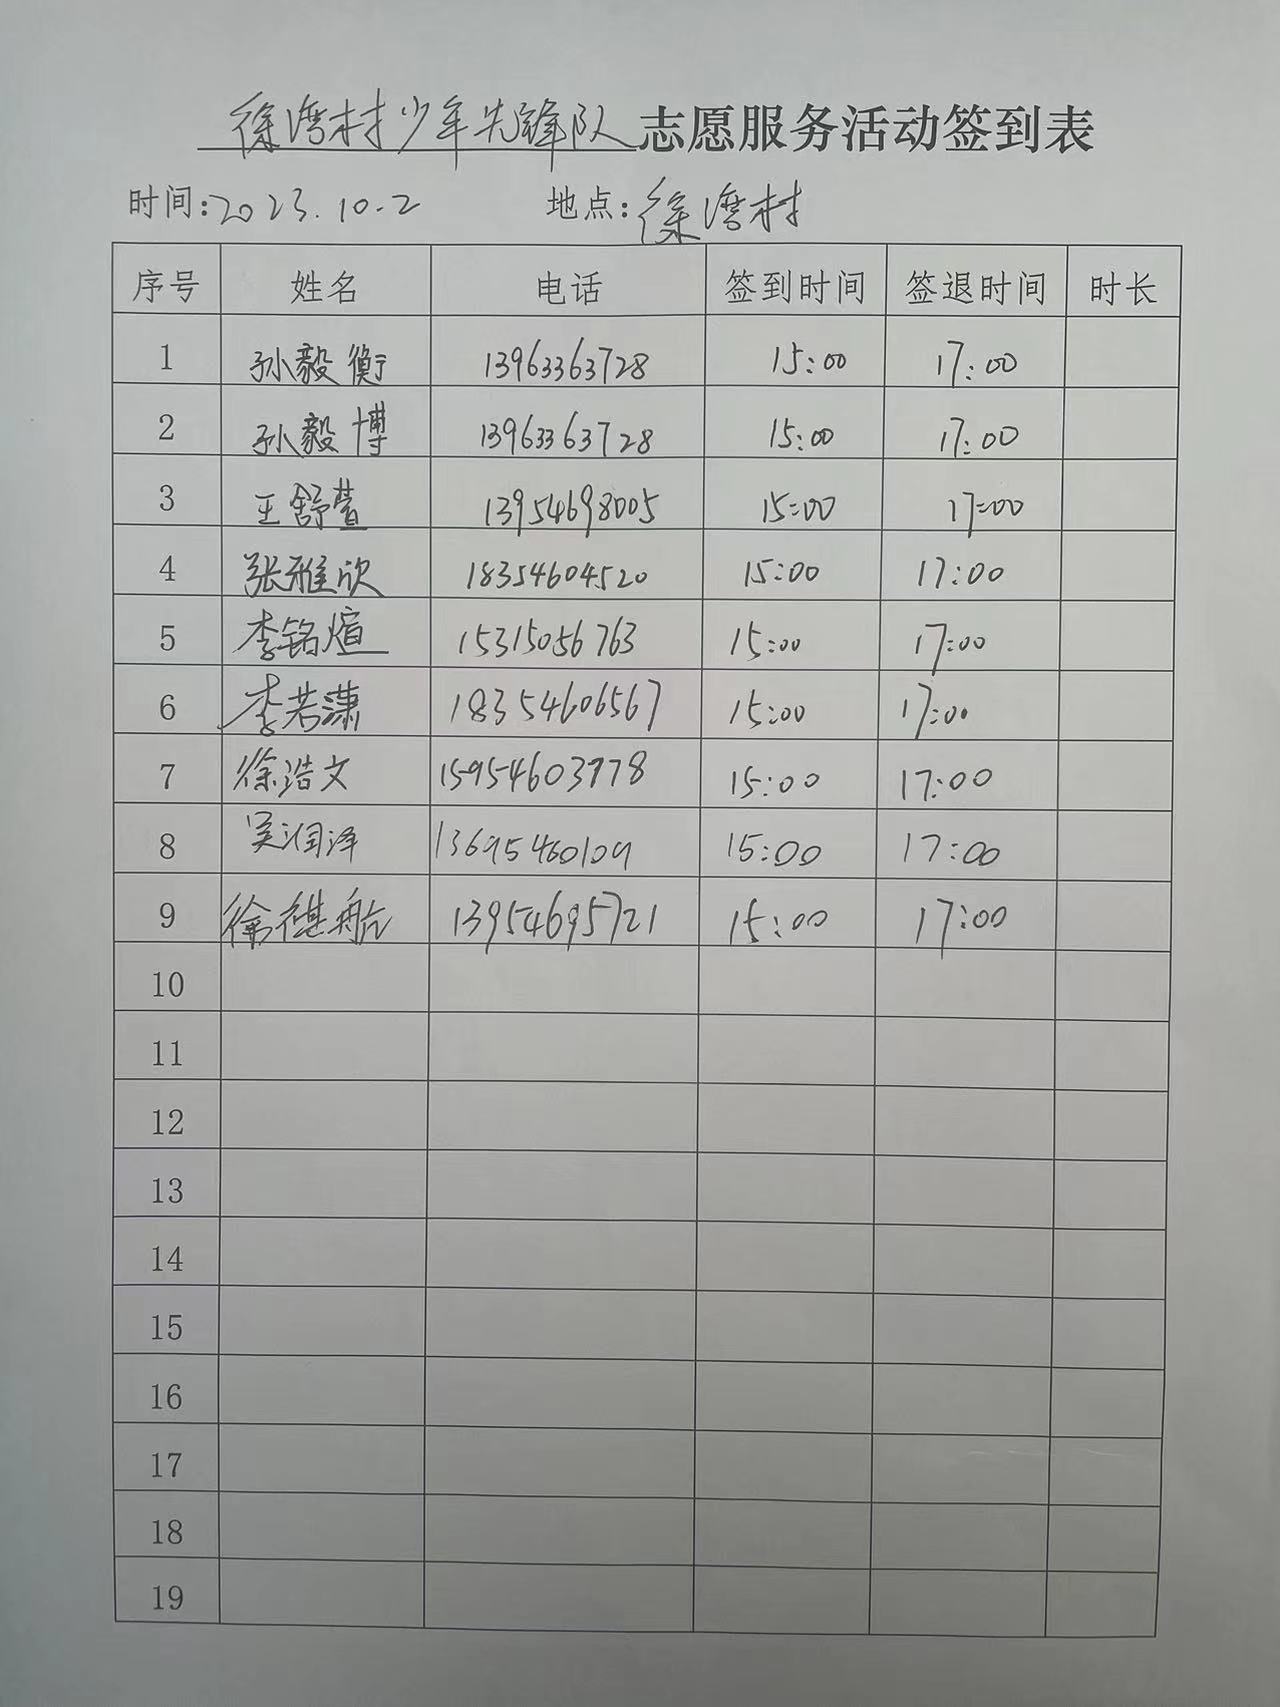 徐湾村少年先锋队志愿服务活动签到表
时间:2023.10.2 地点:徐湾村
序号 姓名 电话 签到时间 签退时间 时长
1 孙毅衡 13963363728 15:00 17:00
2 孙毅博 13963363728 15:00 17:00
3 王舒萱 13954698005 15:00 17:00
4 张雅欣 18354604520 15:00 17:00
5 李铭煊 15315056763 15:00 17:00
6 李若潇 18354606567 15:00 17:00
7 徐浩文 15954603778 15:00 17:00
8 吴润泽 13695460109 15:00 17:00
9 徐祺航 13954695721 15:00 17:00
10
11
12
13
14
15
16
17
18
19